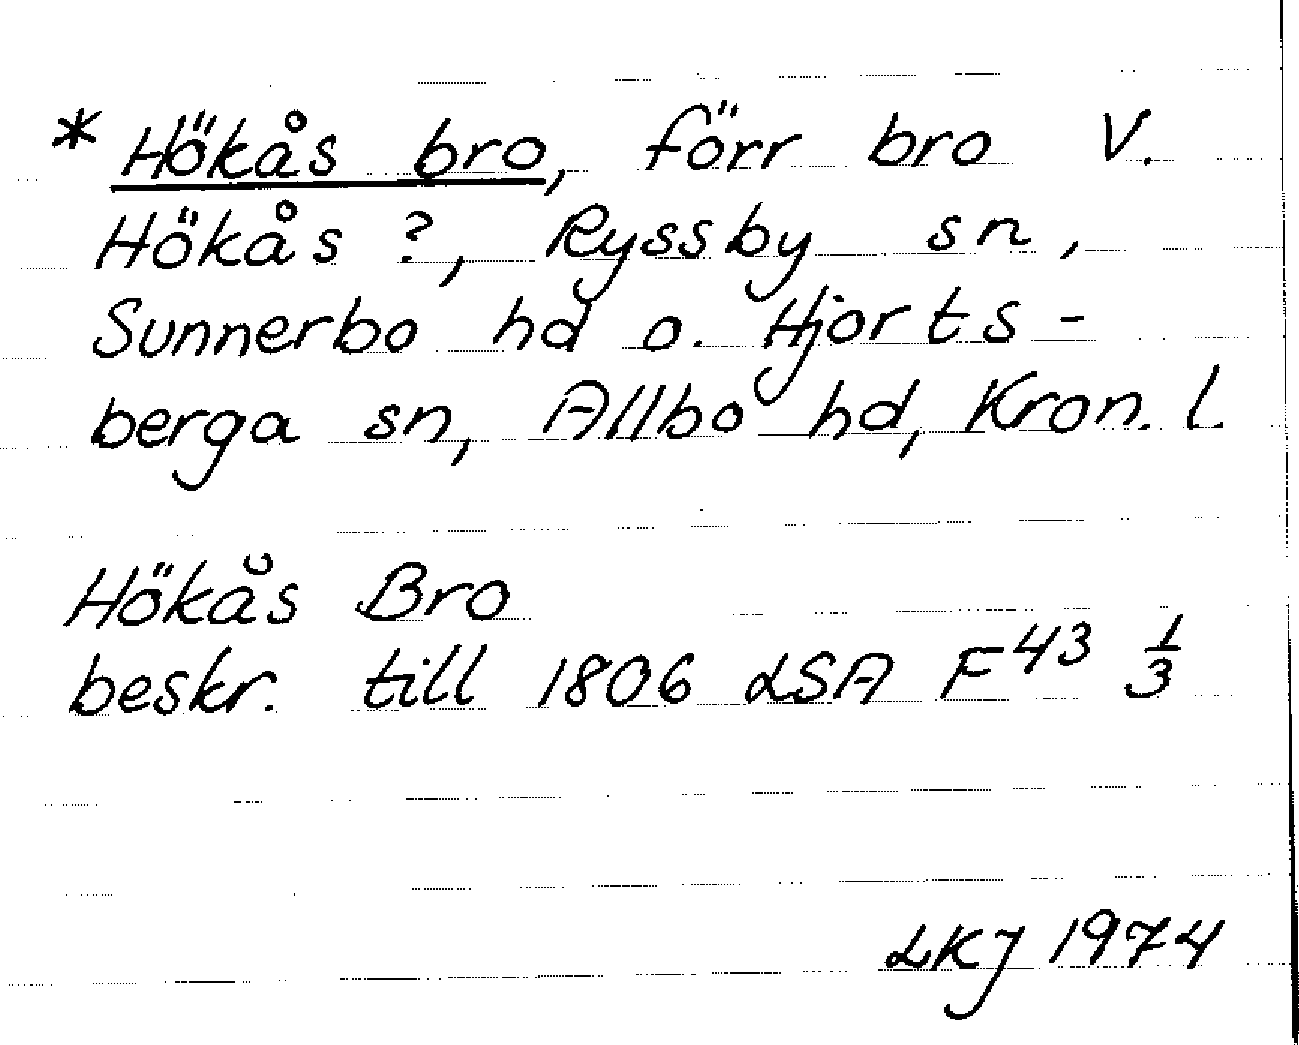 * Hökås bro, förr bro V.
Hökås ?, Ryssby sn,
Sunnerbo hd o. Hjorts-
berga sn, Allbo hd, Kron. l.
Hökås Bro
beskr. till 1806 LSA F⁴³ 1/3
LKJ 1974